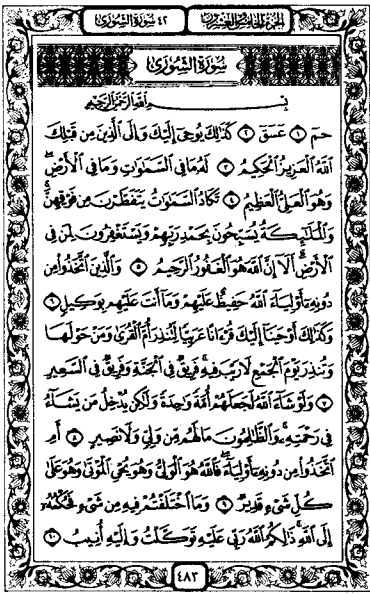 الجزء الخامس والعشرون
٤٢ سورة الشورى
سُورَةُ الشُّورَىٰ
بِسْمِ ٱللَّهِ ٱلرَّحْمَٰنِ ٱلرَّحِيمِ
حمٓ ١ عٓسٓقٓ ٢ كَذَٰلِكَ يُوحِىٓ إِلَيْكَ وَإِلَى ٱلَّذِينَ مِن قَبْلِكَ
ٱللَّهُ ٱلْعَزِيزُ ٱلْحَكِيمُ ٣ لَهُۥ مَا فِى ٱلسَّمَٰوَٰتِ وَمَا فِى ٱلْأَرْضِۖ
وَهُوَ ٱلْعَلِىُّ ٱلْعَظِيمُ ٤ تَكَادُ ٱلسَّمَٰوَٰتُ يَتَفَطَّرْنَ مِن فَوْقِهِنَّۚ
وَٱلْمَلَٰٓئِكَةُ يُسَبِّحُونَ بِحَمْدِ رَبِّهِمْ وَيَسْتَغْفِرُونَ لِمَن فِى
ٱلْأَرْضِۗ أَلَآ إِنَّ ٱللَّهَ هُوَ ٱلْغَفُورُ ٱلرَّحِيمُ ٥ وَٱلَّذِينَ ٱتَّخَذُوا۟ مِن
دُونِهِۦٓ أَوْلِيَآءَ ٱللَّهُ حَفِيظٌ عَلَيْهِمْ وَمَآ أَنتَ عَلَيْهِم بِوَكِيلٍ ٦
وَكَذَٰلِكَ أَوْحَيْنَآ إِلَيْكَ قُرْءَانًا عَرَبِيًّا لِّتُنذِرَ أُمَّ ٱلْقُرَىٰ وَمَنْ حَوْلَهَا
وَتُنذِرَ يَوْمَ ٱلْجَمْعِ لَا رَيْبَ فِيهِۚ فَرِيقٌ فِى ٱلْجَنَّةِ وَفَرِيقٌ فِى ٱلسَّعِيرِ
٧ وَلَوْ شَآءَ ٱللَّهُ لَجَعَلَهُمْ أُمَّةً وَٰحِدَةً وَلَٰكِن يُدْخِلُ مَن يَشَآءُ
فِى رَحْمَتِهِۦۚ وَٱلظَّٰلِمُونَ مَا لَهُم مِّن وَلِىٍّ وَلَا نَصِيرٍ ٨ أَمِ
ٱتَّخَذُوا۟ مِن دُونِهِۦٓ أَوْلِيَآءَۖ فَٱللَّهُ هُوَ ٱلْوَلِىُّ وَهُوَ يُحْىِ ٱلْمَوْتَىٰ وَهُوَ عَلَىٰ
كُلِّ شَىْءٍ قَدِيرٌ ٩ وَمَا ٱخْتَلَفْتُمْ فِيهِ مِن شَىْءٍ فَحُكْمُهُۥٓ
إِلَى ٱللَّهِۚ ذَٰلِكُمُ ٱللَّهُ رَبِّى عَلَيْهِ تَوَكَّلْتُ وَإِلَيْهِ أُنِيبُ ١٠
٤٨٣